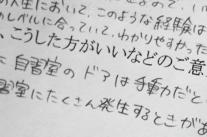 人生において、このような経験は
のレベルに合っていて、わかりやすかった
、こうした方がいいなどのご意
自習室のドアは手動だと
習室にたくさん発生するときが